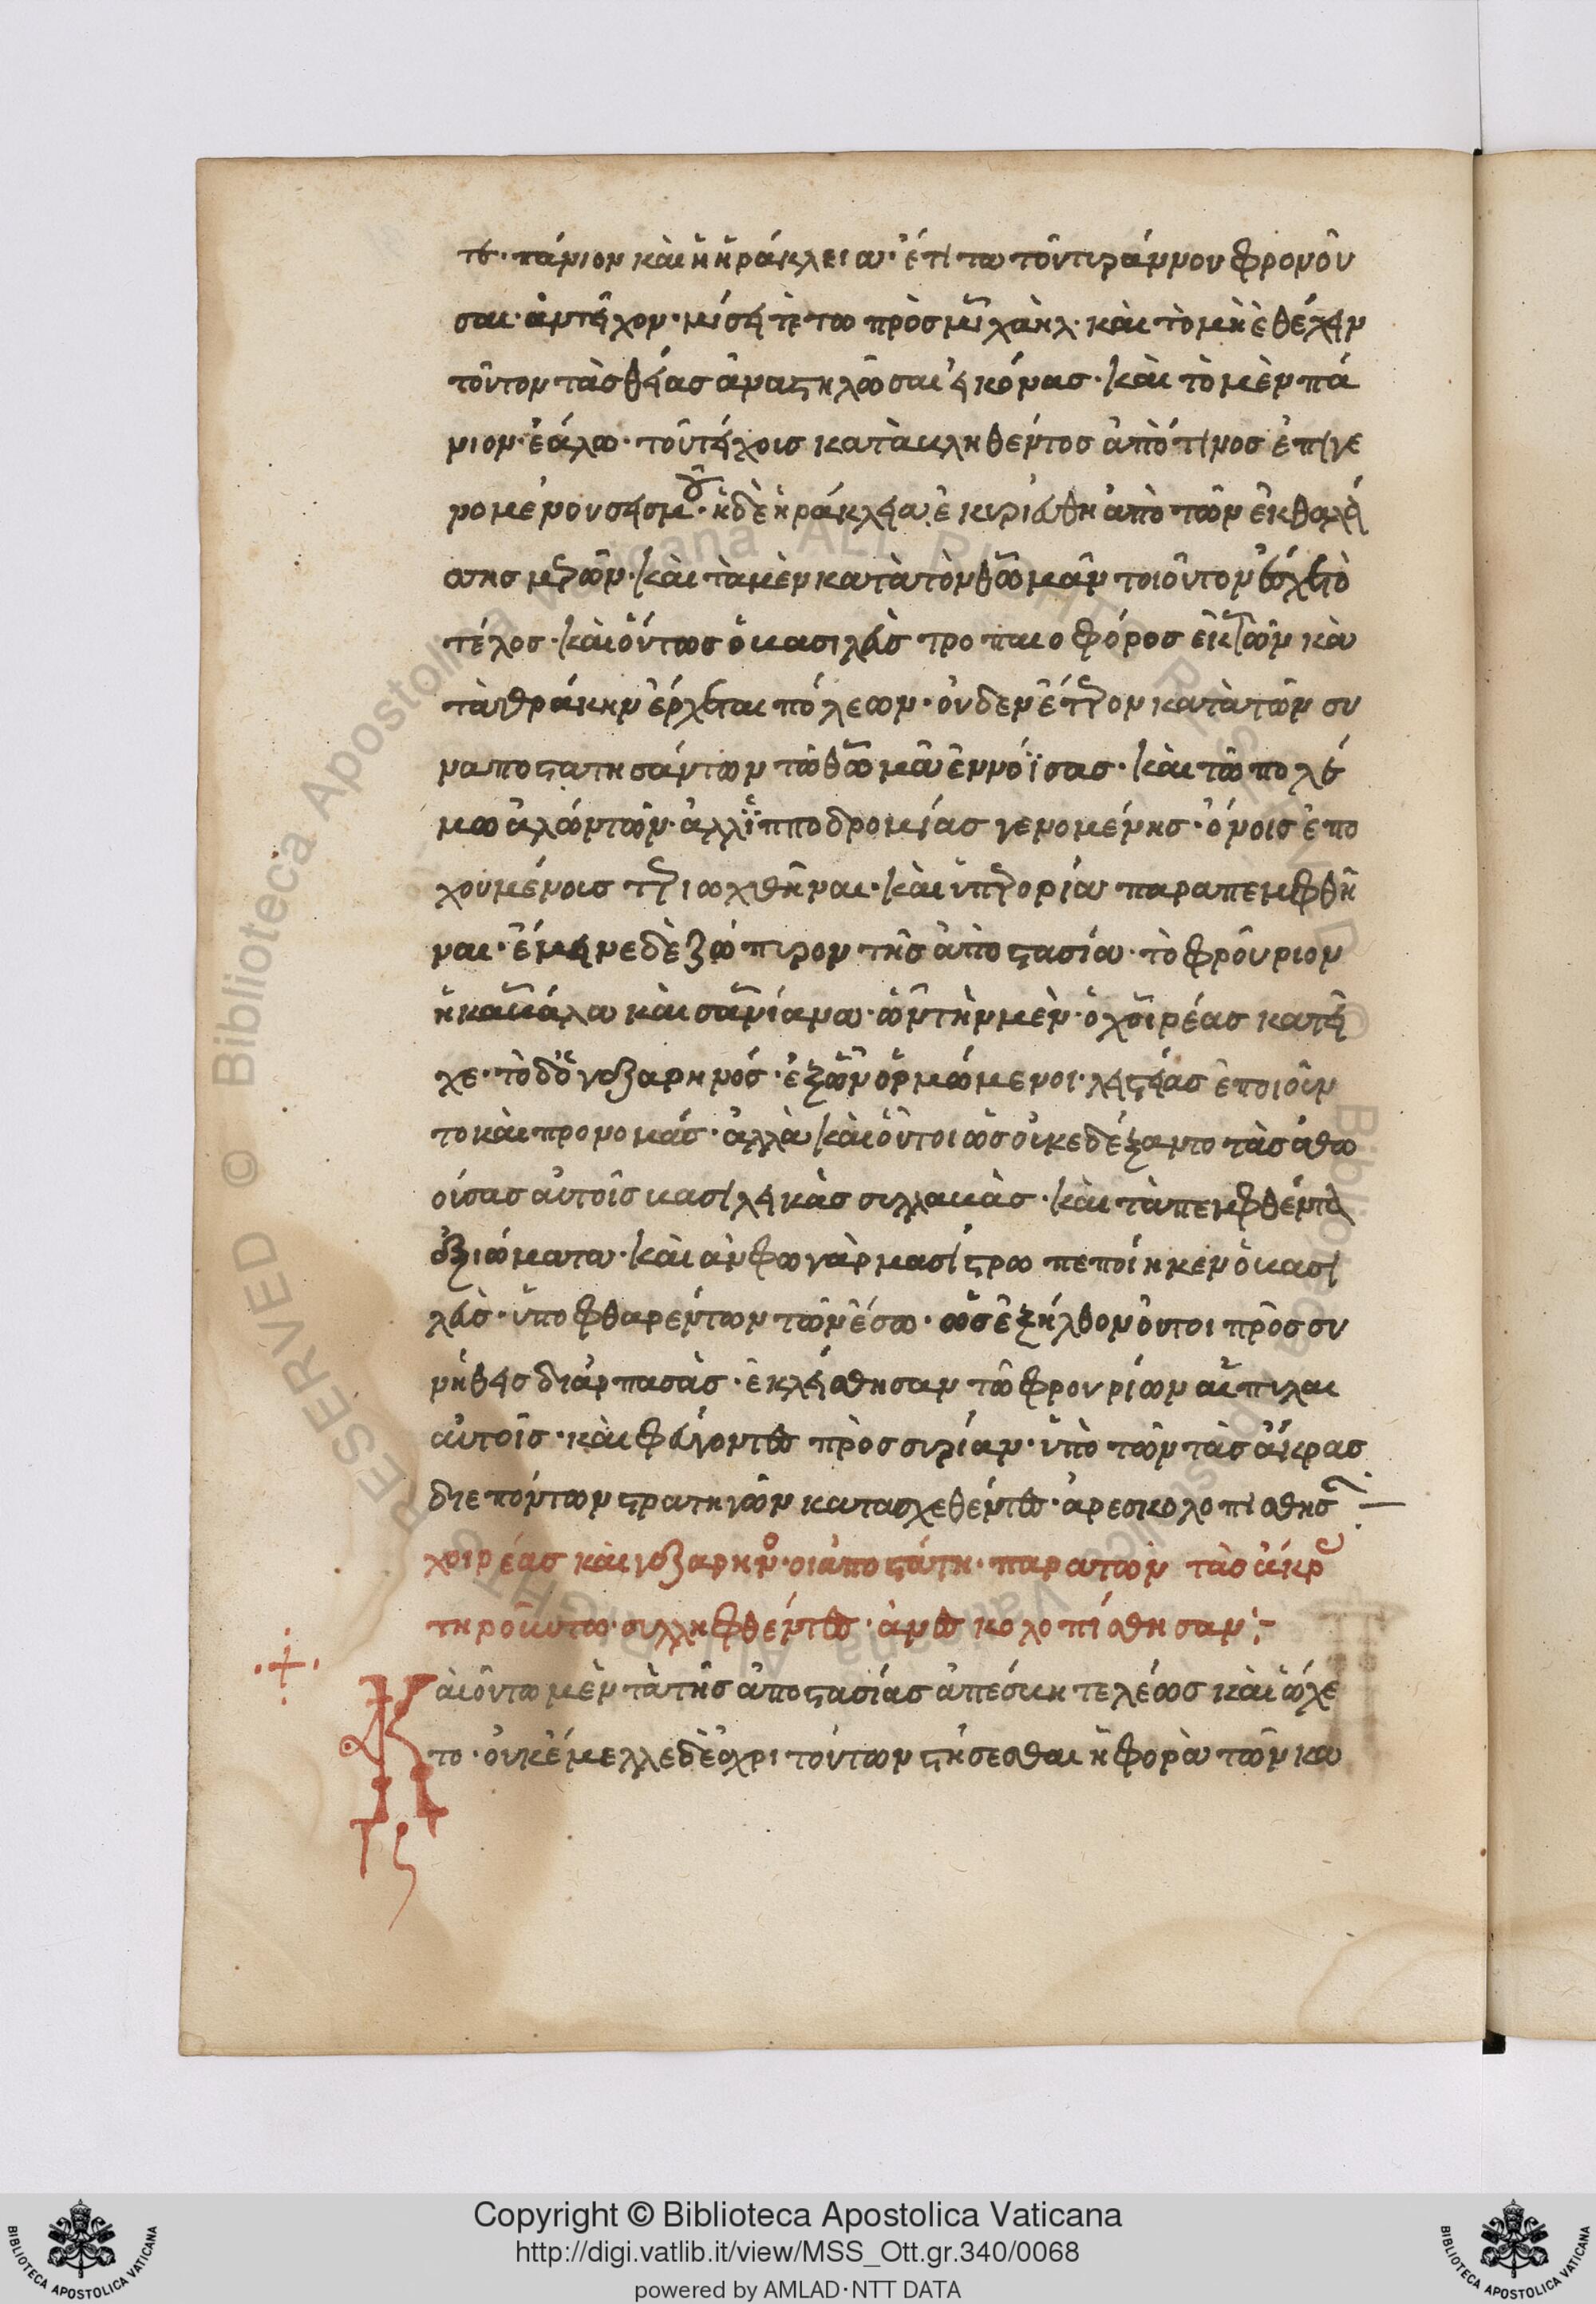 τε· πάνιον καὶ ἡ ἡράκλεια· ἔτι τα τοῦ τυράννου φρονοῦ
σαι· ἀντῆχον· μίσει τὲ τω πρὸς μιχαὴλ· καὶ τὸ μὴ ἐθέλειν
τοῦτον τὰς θείας ἀναστηλῶσαι εἰκόνας· καὶ τὸ μὲν πά
νιον· ἑάλω· τοῦ τείχοις κατακληθέντος ἀπό τινος ἐπιγε
νομένου σεισμοῦ· ἡ δὲ ἡράκλεια ἐκυριεύθη ἀπὸ τῶν ἐκ θαλά
σης μερῶν· καὶ τὰ μὲν κατὰ τὸν θωμᾶν τοιοῦτον ἔσχε τὸ
τέλος· καὶ οὕτως ὁ βασιλεὺς τροπαιοφόρος ἐκ τῶν κα
τὰ θράκην ἔρχεται πόλεων· οὐδὲν ἕτερον κατὰ τῶν συ
ναποστατησάντων τῶ θωμᾶ ἐννοΐσας· καὶ τῶ πολέ
μω ἁλώντων· ἀλλ ἱπποδρομίας γενομένης· ὄνοις ἐπο
χουμένοις τεριωχθῆναι· καὶ ὑπερορία παραπεμφθῆ
ναι· ἔμεινε δὲ ζώπυρον τῆς ἀποστασία· τὸ φρούριον
ἡ καβάλα καὶ σανίανα· ὧν τὴν μὲν· ὁ χοιρέας κατεῖ
χε· τὸ δ ὁ γαζαρηνός· ἐξ ὧν ὁρμώμενοι· ληστείας ἐποιοῦν
το καὶ προνομάς· ἀλλὰ καὶ οὗτοι ὡς οὐκ ἐδέξαντο τὰς ἀθω
ούσας αὐτοῖς βασιλεικὰς συλλαβὰς· καὶ τὰ πεμφθέντα
ἀξιώματα· καὶ ἀνφω γὰρ μασίστρω πεποίηκεν ὁ βασι
λεὺς· ὑποφθαρέντων τῶν ἔσω· ὡς ἐξήλθον οὗτοι πρὸς συ
νήθεις διαρπασὰς· ἐκλείσθησαν τῶ φρουρίων αἱ πύλαι
αὐτοῖς· καὶ φεύγοντες πρὸς συρίαν· ὑπὸ τῶν τὰς ἄκρας
διεπόντων στρατηγῶν κατασχεθέντες· ἀρεσκολοπίσθησαν
χοιρέας καὶ γαζαρηνὸ· οι ἀποστάτη· παρα τῶν τὰς ἄκρας
τηροῦντα· συλληφθέντες· ἀνεσκολοπίσθησαν:-
Καὶ οὕτω μὲν τὰ τῆς ἀποστασίας ἀπέσβη τελέως καὶ ὤχε
το· οὐκ ἔμελλε δὲ ἄχρι τούτων στήσεσθαι ἡ φορὰ τῶν κα
Copyright © Biblioteca Apostolica Vaticana
http://digi.vatlib.it/view/MSS_Ott.gr.340/0068
powered by AMLAD·NTT DATA